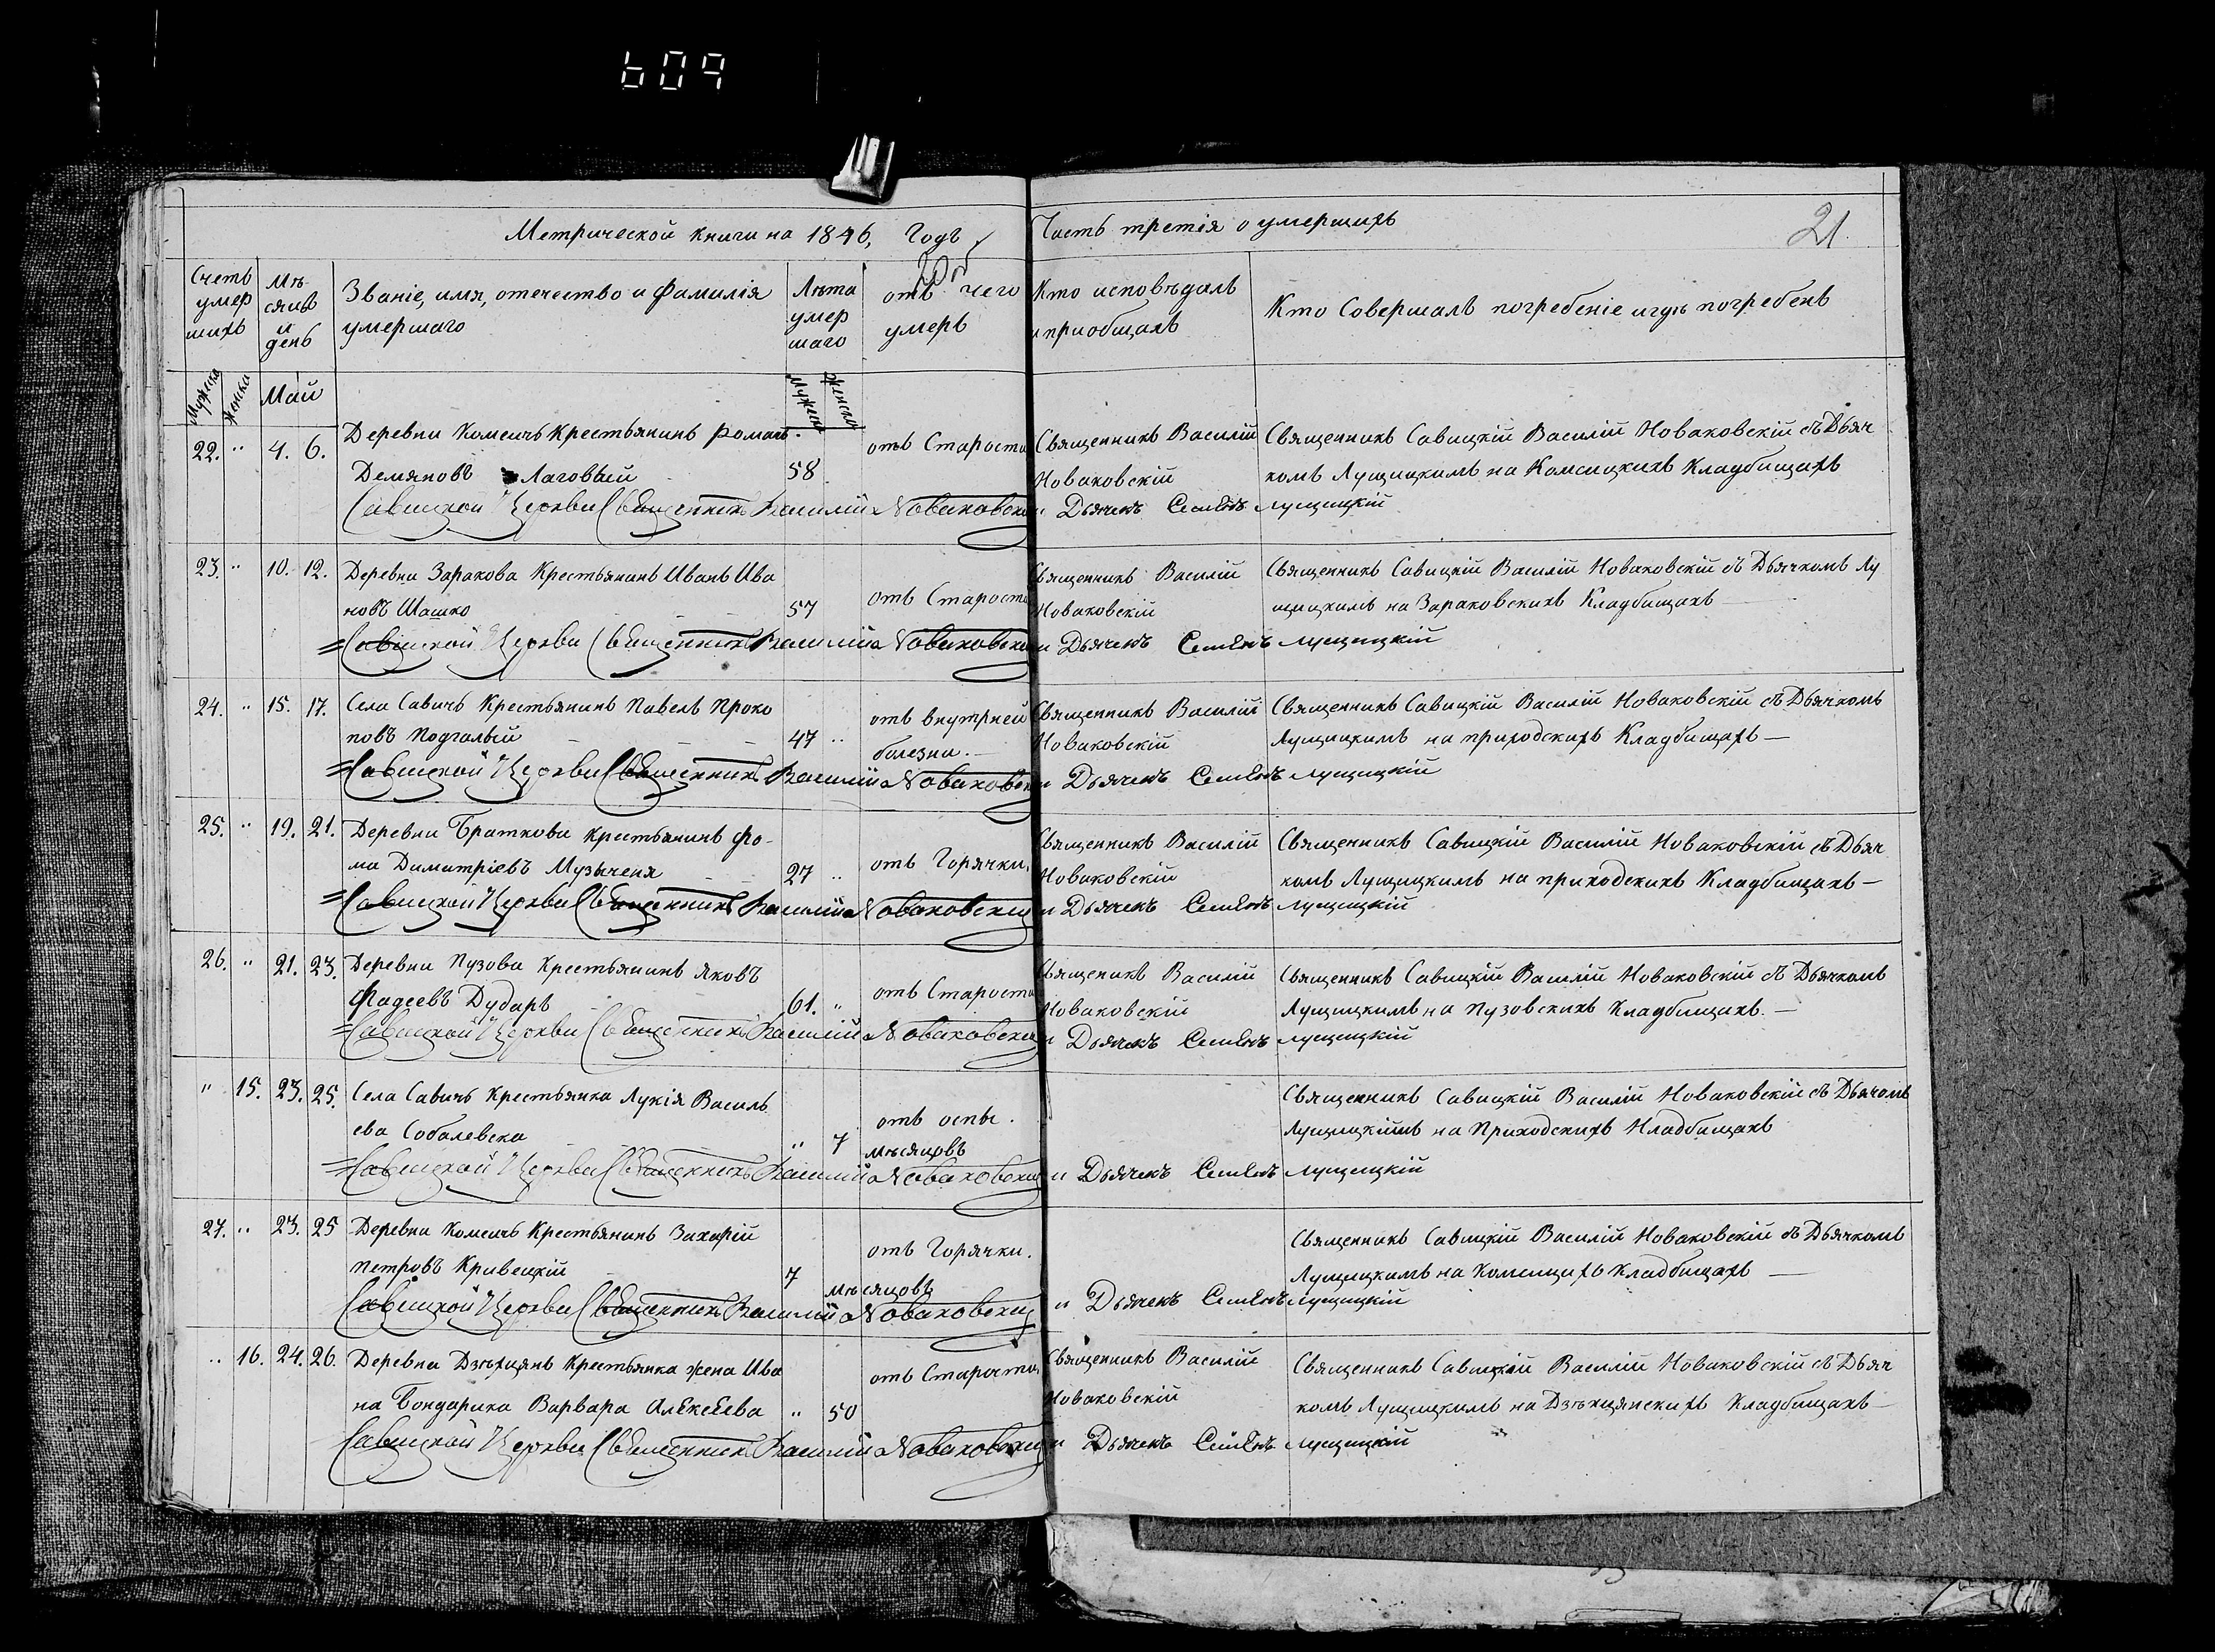 609
Метрической книги на 1846, Годъ Часть третія о умершихъ
21.
Счетъ умер шихъ
Мѣ сяцъ и день
Званіе, имя, отечество и фамилія умершаго
Лѣта умер шаго
отъ чего умеръ
Кто исповѣдалъ и приобщалъ
Кто Совершалъ погребеніе и гдѣ погребенъ
Мужеска Женска Май Мужеска Женска
22. " 4. 6. Деревни Комсичъ Крестьянинъ Романъ отъ Старости Священникъ Василій Священникъ Савицкій Василій Новаковскій съ Дьяч
Демяновъ Лаговъій 58 Новаковскій комъ Лущицкимъ на Комсицкихъ Кладбищахъ
Савицкой Церкви Священникъ Василій Новаковскій и Дьячекъ Семенъ Лущицкій
23. " 10. 12. Деревни Заракова Крестьянинъ Иванъ Ива отъ Старости Священникъ Василій Священникъ Савицкій Василій Новаковскій съ Дьячкомъ Лу
новъ Шашко 57 Новаковскій щицкимъ на Зараковскихъ Кладбищахъ
Савицкой Церкви Священникъ Василій Новаковскій и Дьячекъ Семенъ Лущицкій
24. " 15. 17. Села Савичъ Крестьянинъ Павелъ Проко отъ внутрней Священникъ Василій Священникъ Савицкій Василій Новаковскій съ Дьячкомъ
повъ Подгалый 47 " болезни. Новаковскій Лущицкимъ на приходскихъ Кладбищахъ —
Савицкой Церкви Священникъ Василій Новаковскій и Дьячекъ Семенъ Лущицкій
25. " 19. 21. Деревни Браткови Крестьянинъ Фо- отъ Горячки. Священникъ Василій Священникъ Савицкій Василій Новаковскій съ Дьяч
ма Димитріевъ Музыченя 27 " Новаковскій комъ Лущицкимъ на приходскихъ Кладбищахъ —
Савицкой Церкви Священникъ Василій Новаковскій и Дьячекъ Семенъ Лущицкій
26. " 21. 23. Деревни Пузови Крестьянинъ Яковъ отъ Старости Священикъ Василій Священникъ Савицкій Василій Новаковскій съ Дьячкомъ
Фадеевъ Дударь 61. " Новаковскій Лущицкимъ на Пузовскихъ Кладбищахъ. —
Савицкой Церкви Священникъ Василій Новаковскій и Дьячекъ Семенъ Лущицкій
" 15. 23. 25. Села Савичъ Крестьянка Лукія Василь отъ оспы. Священникъ Савицкій Василій Новаковскій съ Дьячомъ
ева Собалевска " 7 мѣсяцовъ Лущицкіимъ на Приходскихъ Кладбищахъ
Савицкой Церкви Священникъ Василій Новаковскій и Дьячекъ Семенъ Лущицкій
27. " 23. 25 Деревни Комсичъ Крестьянинъ Захарій отъ Горячки. Священникъ Савицкій Василій Новаковскій съ Дьячкомъ
Петровъ Кривецкій 7 мѣсяцовъ Лущицкимъ на Комсицихъ Кладбищахъ —
Савицкой Церкви Священникъ Василій Новаковскій и Дьячекъ Семенъ Лущицкій
" 16. 24. 26. Деревни Дзѣхцянъ Крестьянка жена Ива отъ Старости Священникъ Василій Священникъ Савицкій Василій Новаковскій съ Дьяч
на Бондарика Варвара Алексеева " 50 Новаковскій комъ Лущицкимъ на Дзѣхцянскихъ Кладбищахъ —
Савицкой Церкви Священникъ Василій Новаковскій и Дьячекъ Семенъ Лущицкій